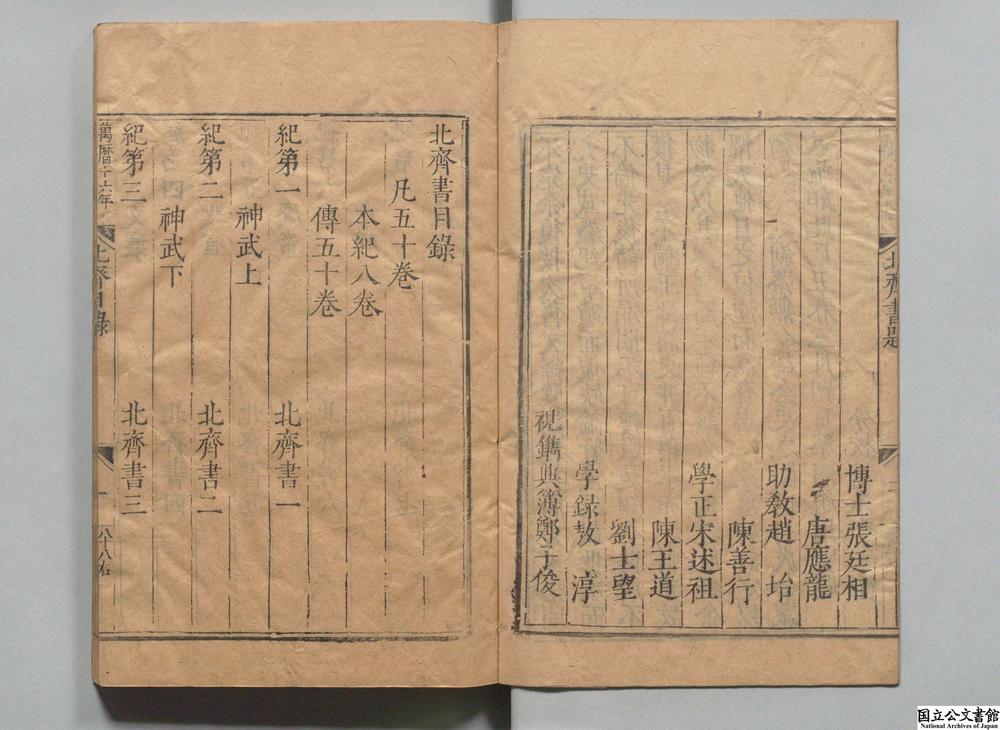 北齊書題
二
分校
博士張廷相
唐應龍
助敎趙 㘽
陳善行
學正宋述祖
陳王道
劉士望
學録敖 淳
視鐫典簿鄭子俊
北齊書目錄
凡五十卷
本紀八卷
傳五十卷
紀第一 北齊書一
神武上
紀第二 北齊書二
神武下
紀第三 北齊書三
萬曆十六年
北齊目錄
一
国立公文書館
National Archives of Japan